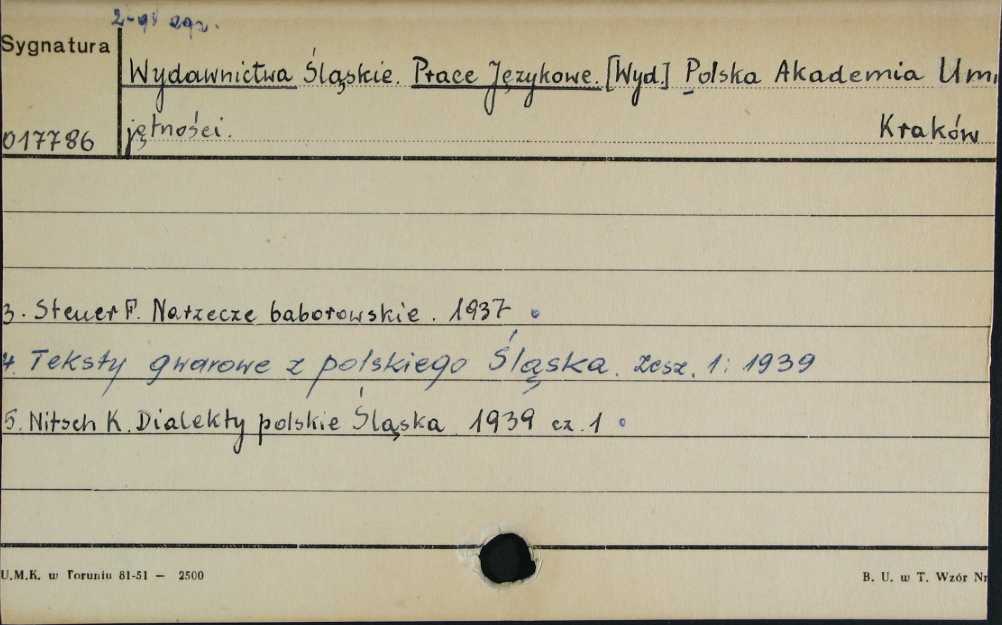 2-gi egz.
Sygnatura
Wydawnictwa Śląskie. Prace Językowe. [Wyd.] Polska Akademia Umi
jętności. Kraków
017786
3. Steuer F. Narzecze baborowskie. 1937
4. Teksty gwarowe z polskiego Śląska. Zesz. 1: 1939
5. Nitsch K. Dialekty polskie Śląska 1939 cz. 1
U.M.K. w Toruniu 81-51 — 2500
B. U. w T. Wzór Nr